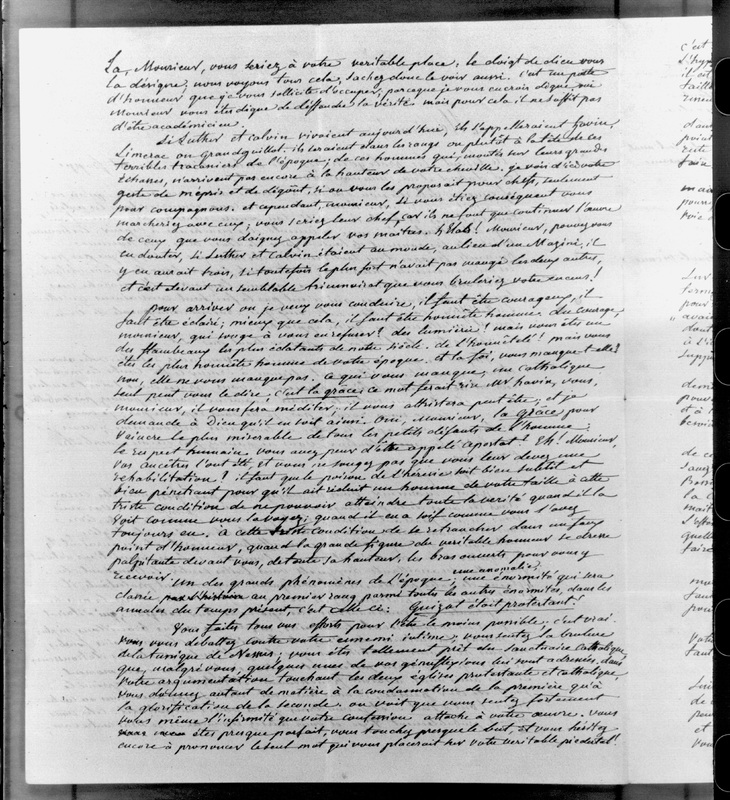 La, Monsieur, vous seriez à votre veritable place; le doigt de dieu vous
la désigne, nous voyons tous cela, sachez donc le voir aussi. C'est un poste
d'honneur que je vous sollicite d'occuper, parceque je vous en crois digne oui
Monsieur vous êtes digne de déffendre la vérité mais pour cela il ne suffit pas
d'être académicien.
Si Luther et Calvin vivaient aujourd'hui, ils s'appelleraient havin,
Limerac ou Grandguillot. ils seraient dans les rangs ou plutôt à la tête de ces
terribles tracassiers de l'époque; de ces hommes qui, montés sur leurs grandes
échasses, n'arrivent pas encore à la hauteur de votre cheville. je vois d'ici votre
geste de mépris et de dégoût, si on vous les proposait pour chefs, seulement
pour compagnons. et cependant, monsieur, si vous étiez conséquent vous
marcheriez avec eux; vous seriez leur chef, car ils ne font que continuer l'œuvre
de ceux que vous daignez appeler vos maitres. hélas! Monsieur, pouvez vous
en douter, si Luther et Calvin étaient au monde, au lieu d'un Mazini, il
y en aurait trois, si toutefois le plus fort n'avait pas mangé les deux autres,
et c'est devant un semblable triumvirat que vous bruleriez votre encens!
pour arriver ou je veux vous conduire, il faut être courageux, il
faut être éclairé; mieux que cela, il faut être honnête homme. du courage,
monsieur, qui songe à vous en refuser? des lumières! mais vous êtes un
des flambeaux les plus éclatants de notre siècle. de l'honnêteté! mais vous
êtes les plus honnête homme de votre époque. et la foi, vous manque t-elle?
non, elle ne vous manque pas. ce qui vous manque, un catholique
seul peut vous le dire, c'est la grâce; ce mot ferait rire Mr havin, vous,
monsieur, il vous fera méditer; il vous attristera peut être; et je
demande à Dieu qu'il en soit ainsi. Oui, Monsieur, la grâce pour
vaincre le plus miserable de tous les petits défauts de l'homme;
le respect humain. vous avez peur d'être appelé apostat! Eh! Monsieur,
vos ancêtres l'ont été, et vous ne songez pas que vous leur devez une
réhabilitation! il faut que le poison de l'hérésie soit bien subtil et
bien pénétrant pour qu'il ait réduit un homme de votre taille à cette
triste condition de ne pouvoir atteindre toute la vérité quand il la
voit comme vous la voyez; quand il en a soif comme vous l'avez
toujours eu. à cette condition de se retrancher dans un faux
point d'honneur, quand la grande figure du veritable honneur se dresse
palpitante devant vous, de toute sa hauteur, les bras ouverts pour vous y
recevoir.
une anomalie,
Un des grands phénomènes de l'époque; une énormité qui sera
classée au premier rang parmi toutes les autres énormités, dans les
annales du temps présent, c'est celle ci: Guizot était protestant!
Vous faites tous vos efforts pour l'être le moins possible, c'est vrai.
vous vous débattez contre votre ennemi intime; vous sentez la brulure
de la tunique de Nessus; vous êtes tellement prêt du sanctuaire catholique
que, malgré vous, quelques unes de vos génuflexions lui sont adressées. dans
votre argumentation touchant les deux églises protestante et catholique
vous donnez autant de matière à la condamnation de la première qu'à
la glorification de la seconde. on voit que vous sentez fortement
vous même l'infirmité que votre confession attache à votre œuvre. vous
êtes presque parfait, vous touchez presque le but, et vous hésitez
encore à prononcer le seul mot qui vous placerait sur votre veritable piédestal!